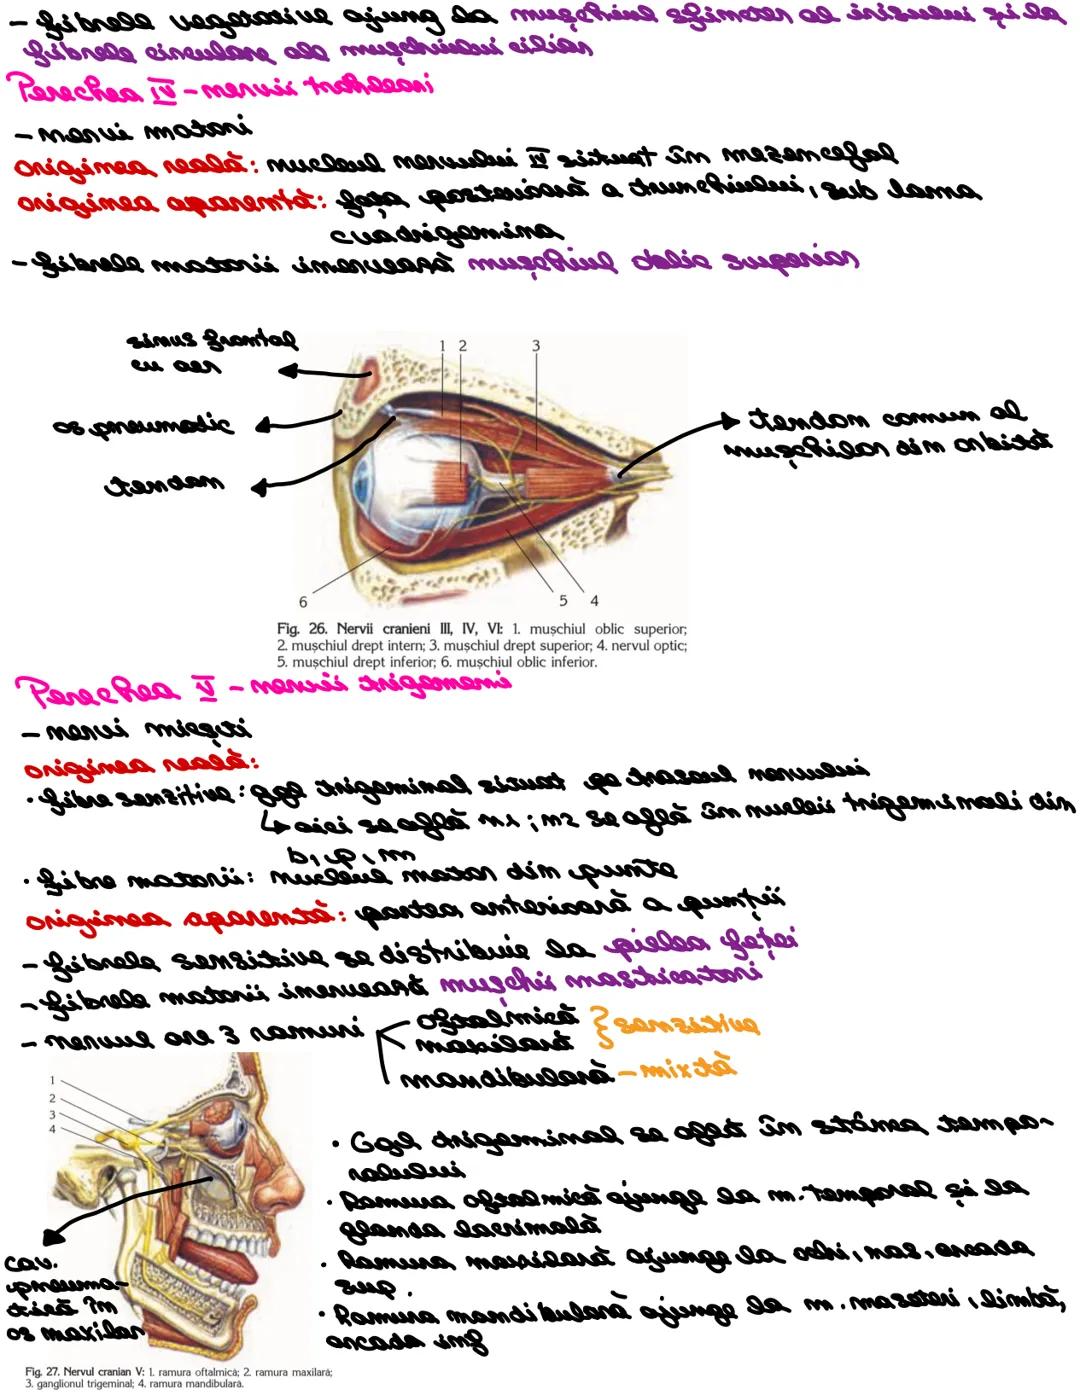 - fibrele vegetative ajung la mușchiul sfincter al irisului și la
fibrele circulare ale mușchiului ciliar
Perechea IV - nervii trohleari
- nervi motori
originea reală: nucleul nervului IV situat în mezencefal
originea aparentă: fața posterioară a trunchiului, sub lama
cuadrigamina
- fibrele motorii inervează mușchiul oblic superior
sinus frontal
cu aer
os pneumatic
tendon
tendon comun al
mușchilor din orbită
1 2 3
6 5 4
Fig. 26. Nervii cranieni III, IV, VI: 1. mușchiul oblic superior;
2. mușchiul drept intern; 3. mușchiul drept superior; 4. nervul optic;
5. mușchiul drept inferior; 6. mușchiul oblic inferior.
Perechea V - nervii trigemeni
- nervi micști
originea reală:
• fibre senzitive: ggl trigeminal situat pe traseul nervului
↳ aici se află n1; n2 se află în nucleii trigeminali din
b, p, m
• fibre motorii: nucleul motor din punte
originea aparentă: partea anterioară a punții
- fibrele senzitive se distribuie la pielea feței
- fibrele motorii inervează mușchii masticatori
- nervul are 3 ramuri
oftalmică } senzitive
maxilară
mandibulară - mixtă
1
2
3
4
• Ggl trigeminal se află în stânca tempo-
ralului
• Ramura oftalmică ajunge la m. temporal și la
glanda lacrimală
• Ramura maxilară ajunge la ochi, nas, arcada
sup.
• Ramura mandibulară ajunge la m. maseteri, limbă,
arcada inf
cav.
pneuma-
tică în
os maxilar
Fig. 27. Nervul cranian V: 1. ramura oftalmică; 2. ramura maxilară;
3. ganglionul trigeminal; 4. ramura mandibulară.